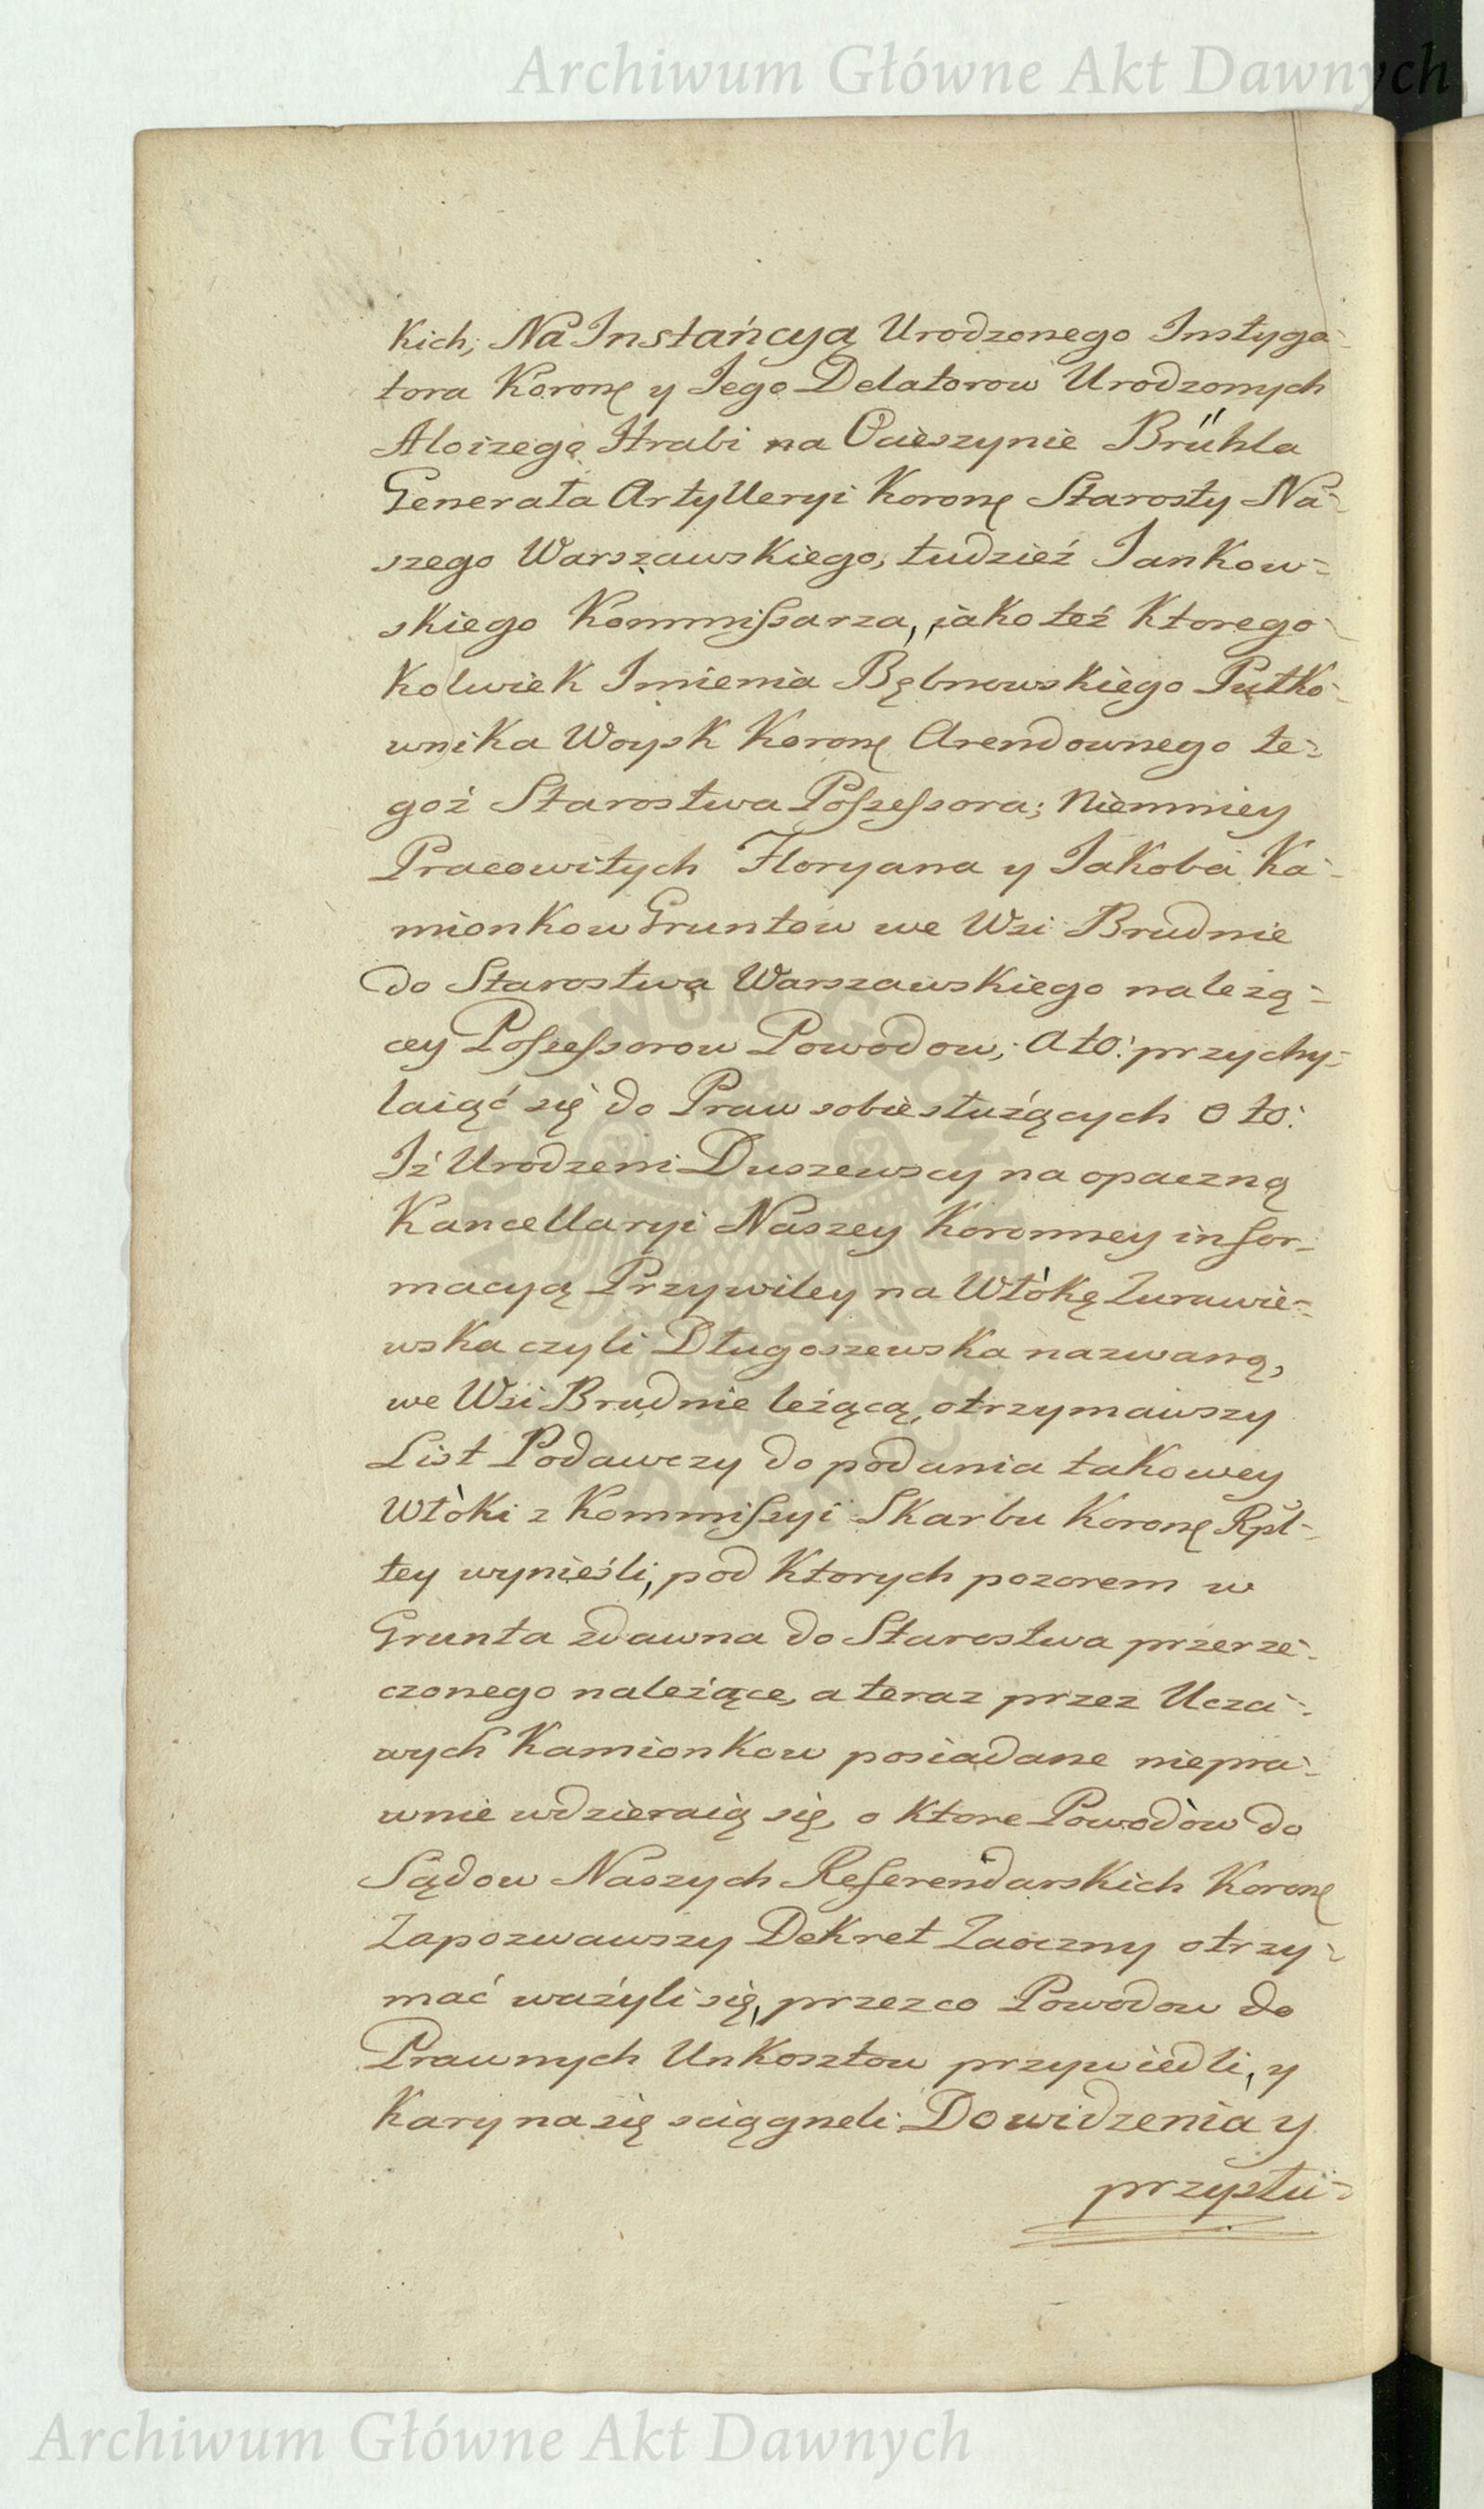 Archiwum Główne Akt Dawnych
kich; Na Instańcyą Urodzonego Instyga-
tora Koronę y Jego Delatorow Urodzonych
Aloizego Hrabi na Ocieszynie Brühla
Generała Artylleryi Koronę Starosty Na-
szego Warszawskiego, tudzież Jankow-
skiego Kommissarza, jako też Ktorego
kolwiek Imienia Bębnowskiego Pułko-
wnika Woysk Koronę Arendownego te-
goż Starostwa Possessora; Niemniey
Pracowitych Floryana y Jakoba Ka-
mionkow Gruntow we Wsi Brudnie
do Starostwa Warszawskiego należą-
cey Possessorow Powodow; A to: przychy-
laiąć się do Praw sobie służących o to:
Iż Urodzeni Duszewscy na opaczną
Kancellaryi Naszey Koronney infor-
macyą Przywiley na Włókę Zurawie-
wska czyli Długoszewska nazwaną,
we Wsi Brudnie leżącą, otrzymawszy
List Podawczy do podania takowey
Włóki z Kommissyi Skarbu Koronę Rpl-
tey wynieśli, pod Ktorych pozorem w
Grunta zdawna do Starostwa przerze-
czonego należące, a teraz przez Uczci-
wych Kamionkow posiadane niepra-
wnie wdzieraią się, o Ktore Powodów do
Sądow Naszych Referendarskich Koronę
Zapozwawszy Dekret Zaoczny otrzy-
mać ważyli się, przez co Powodow do
Prawnych Unkosztow przywiedli, y
Kary na się sciągneli. Do widzenia y
przysłu-
Archiwum Główne Akt Dawnych